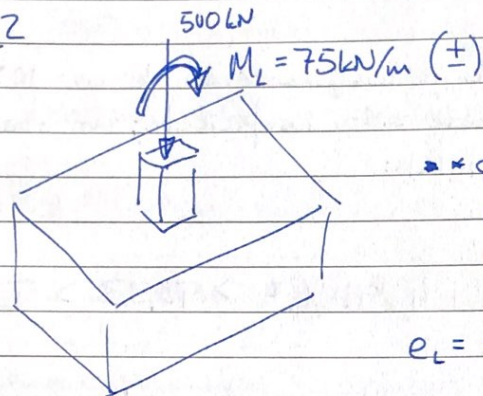 2
500kN
M_L = 75kN/m (±)
**
e_L =